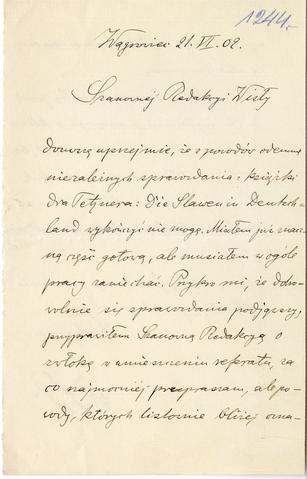 1244.
Wągrowiec 21. VI. 02.
Szanownej Redakcyi Wisły
donoszę uprzejmie, że z powodów odemnie
niezależnych sprawozdania z książki
dra Tetznera: Die Slawen in Deutsch-
land wykończyć nie mogę. Miałem już znacz-
ną część gotową, ale musiałem w ogóle
pracy zaniechać. Przykro mi, że dobro-
wolnie się sprawozdania podjąwszy,
przyprawiłem Szanowną Redakcyą o
zwłokę w umieszczeniu referatu, za
co najmocniej przepraszam, ale po-
wody, których listownie bliżej ozna-